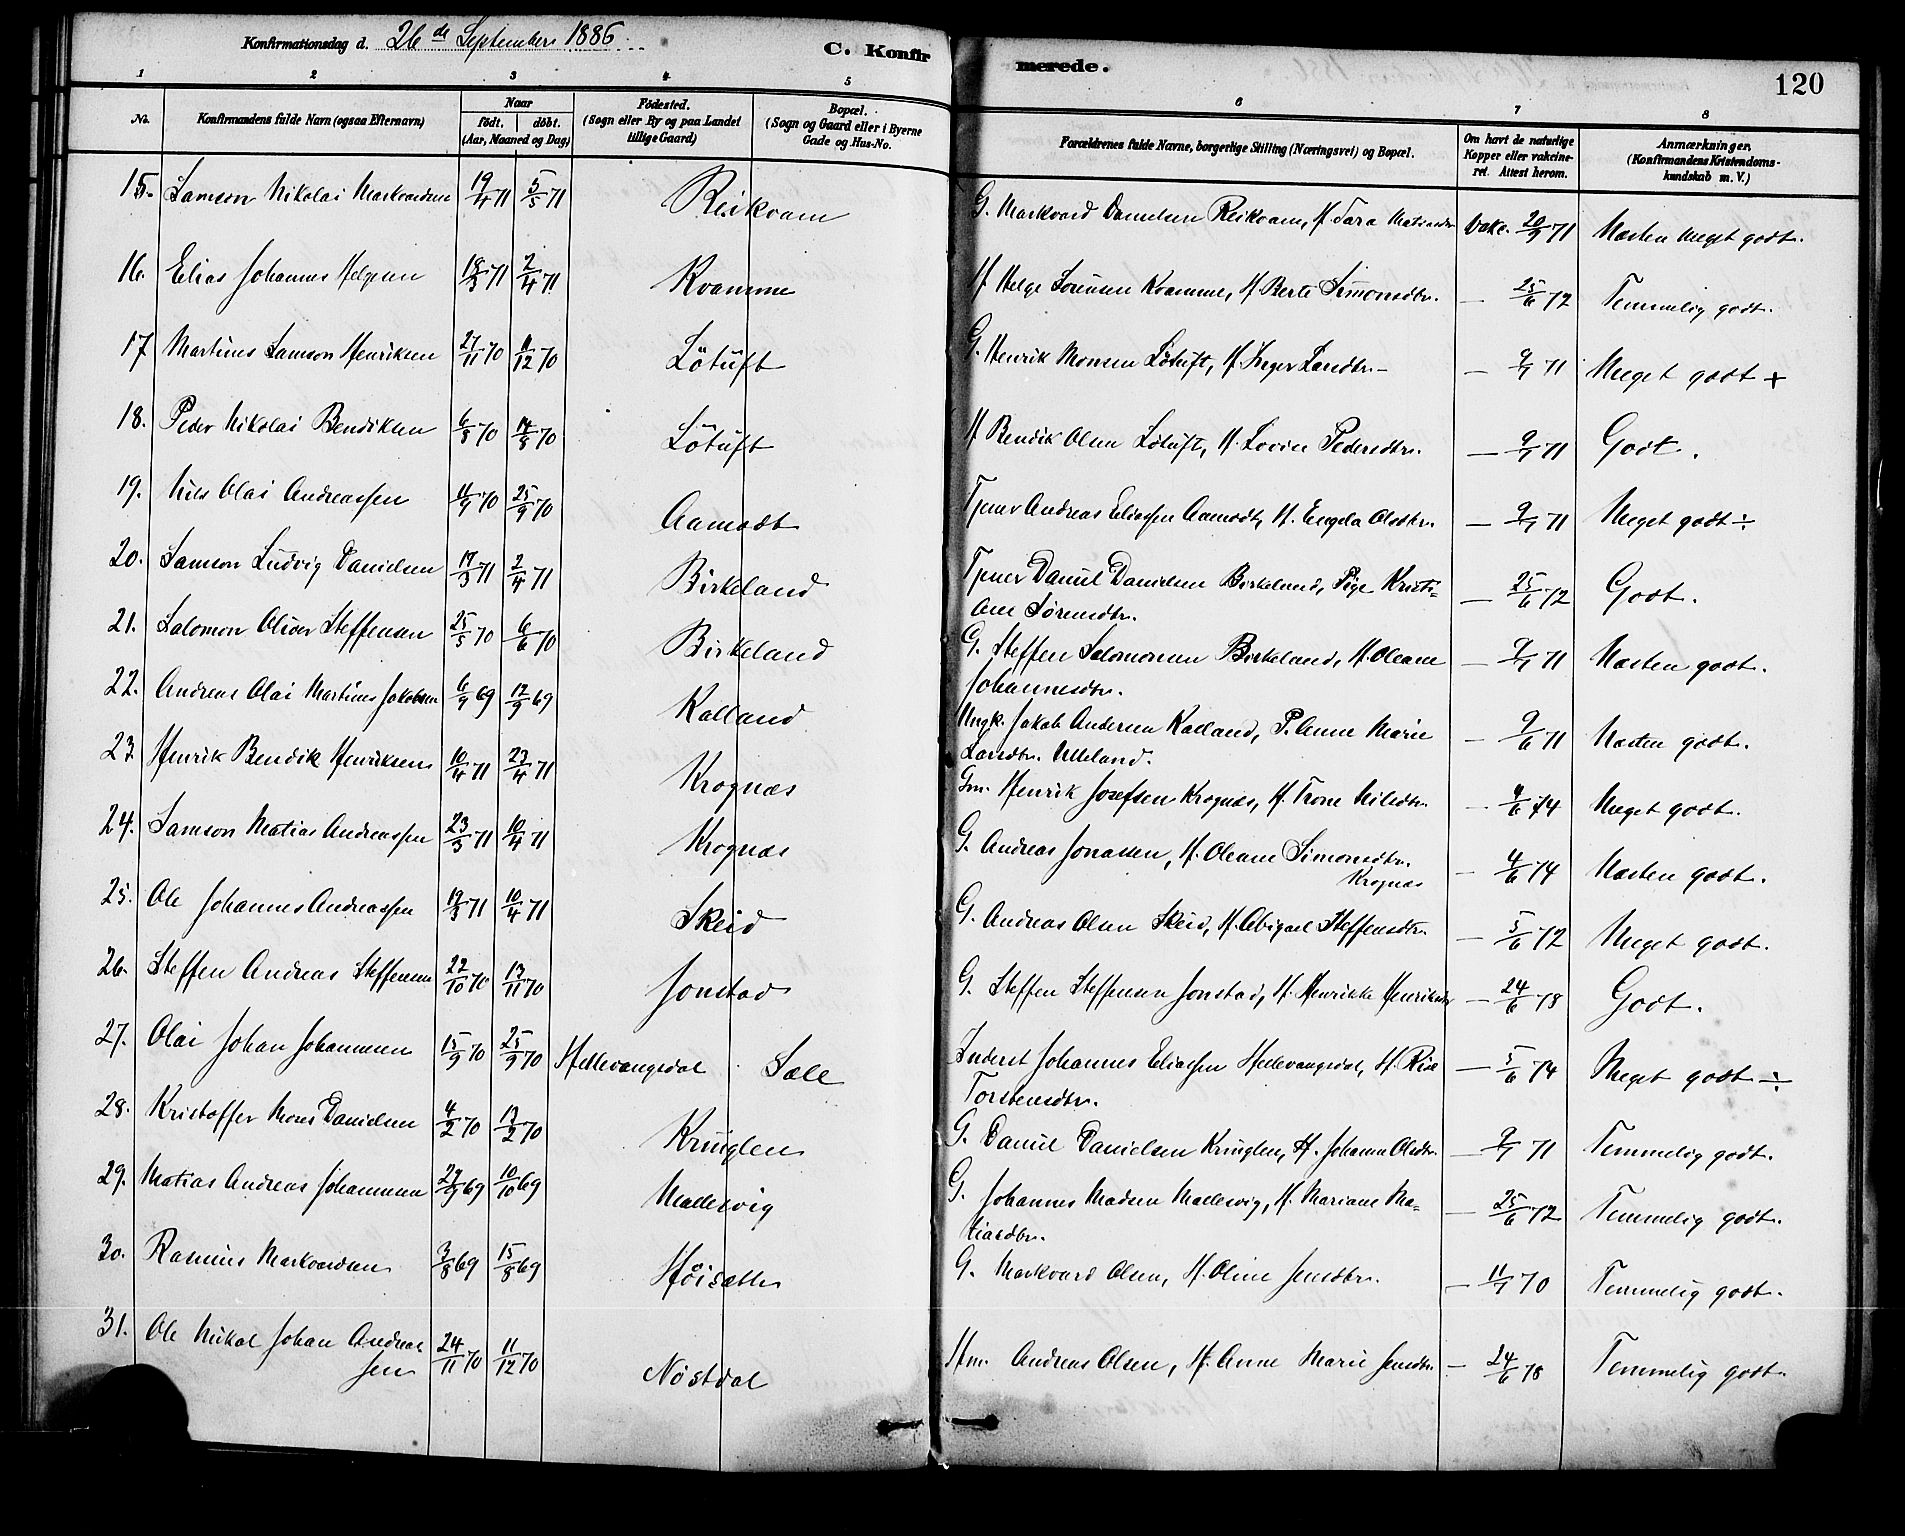 Konfirmationsdag d. 26de September 1886.
C. Konfirmerede.
120
1 2 3 4 5 6 7 8
No. Konfirmandens fulde Navn (ogsaa Efternavn) Naar födt. döbt. (Aar, Maaned og Dag) Födested. (Sogn eller By og paa Landet tillige Gaard) Bopæl. (Sogn og Gaard eller i Byerne Gade og Hus-No. Forældrenes fulde Navne, borgerlige Stilling (Næringsvei) og Bopæl. Om havt de naturlige Kopper eller vakcineret. Attest herom. Anmærkninger. (Konfirmandens Kristendomskundskab m. V.)
15. Samson Nikolai Markvardsen 19/4 71 5/5 71 Reikvam G. Markvard Danielsen Reikvam, H. Sara Matiasdtr Vakc. 20/9 71 Næsten meget godt.
16. Elias Johannes Helgesen 18/3 71 2/4 71 Kvamme H Helge Sørensen Kvamme, H. Berte Simonsdtr. — 25/6 72 Temmelig godt.
17 Martinus Samson Henriksen 27/11 70 11/12 70 Lötuft G. Henrik Monsen Lötuft, H. Inger Larsdtr — 9/7 71 Meget godt +
18. Peder Nikolai Bendiksen 6/8 70 14/8 70 Lötuft H Bendik Olsen Lötuft, H. Lovise Pedersdtr. — 9/7 71 Godt.
19. Nils Olai Andreassen 11/9 70 25/9 70 Aamodt Tjener Andreas Eliassen Aamodt, H. Engela Olsdtr. — 9/7 71 Meget godt ÷
20. Samson Ludvig Danielsen 17/3 71 2/4 71 Birkeland Tjener Daniel Danielsen Birkeland, Pige Kristi-
ane Sørensdtr. — 25/6 72 Godt.
21. Salomon Oliver Steffensen 25/5 70 6/6 70 Birkeland G. Steffen Salomonsen Birkeland, H. Oleane
Johannesdtr. — 9/7 71 Næsten godt.
22. Andreas Olai Martinus Jakobsen 6/9 69 12/9 69 Kalland Ungk. Jakob Andersen Kalland, P. Anne Marie
Larsdtr. Ulleland. — 9/6 71 Næsten godt.
23. Henrik Bendik Henriksen 10/4 71 23/4 71 Krognæs Gm. Henrik Josefsen Krognæs, H. Trone Nilsdtr. — 4/6 74 Meget godt.
24. Samson Matias Andreassen 23/3 71 10/4 71 Krognæs G. Andreas Jonassen, H. Oleane Simonsdtr.
Krognæs — 4/6 74 Næsten godt.
25. Ole Johannes Andreassen 19/3 71 10/4 71 Skeid G. Andreas Olsen Skeid, H. Abigael Steffensdtr. — 5/6 72 Meget godt.
26. Steffen Andreas Steffensen 22/10 70 13/11 70 Jonstad G. Steffen Steffensen Jonstad, H. Henrikke Henriksdtr — 24/6 78 Godt.
27. Olai Johan Johannesen 15/9 70 25/9 70 Hellevangsdal Sæle Inderst Johannes Eliassen Hellevangsdal, H. Rise
Torstensdtr. — 5/6 74 Meget godt ÷
28. Kristoffer Mons Danielsen 4/2 70 13/2 70 Kringlen G. Daniel Danielsen Kringlen, H. Johanne Olsdtr. — 9/7 71 Temmelig godt.
29. Matias Andreas Johannesen 27/9 69 10/10 69 Mallesvig G. Johannes Madsen Mallesvig, H. Mariane Ma-
tiasdtr. — 25/6 72 Temmelig godt.
30. Rasmus Markvardsen 3/8 69 15/8 69 Höisæter G. Markvard Olsen, H. Oline Jensdtr. — 11/7 70 Temmelig godt.
31. Ole Mikal Johan Andreas
sen 24/11 70 11/12 70 Nöstdal Hm. Andreas Olsen, H. Anne Marie Jensdtr. — 24/6 78 Temmelig godt.